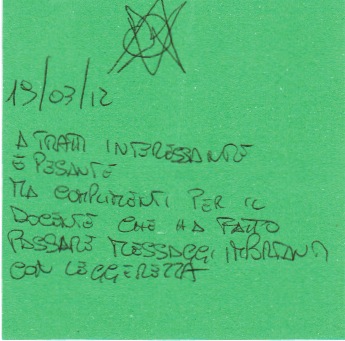 19/03/12
A TRATTI INTERESSANTE
E PESANTE
MA COMPLIMENTI PER IL
DOCENTE CHE HA FATTO
PASSARE MESSAGGI IMPORTANTI
CON LEGGEREZZA